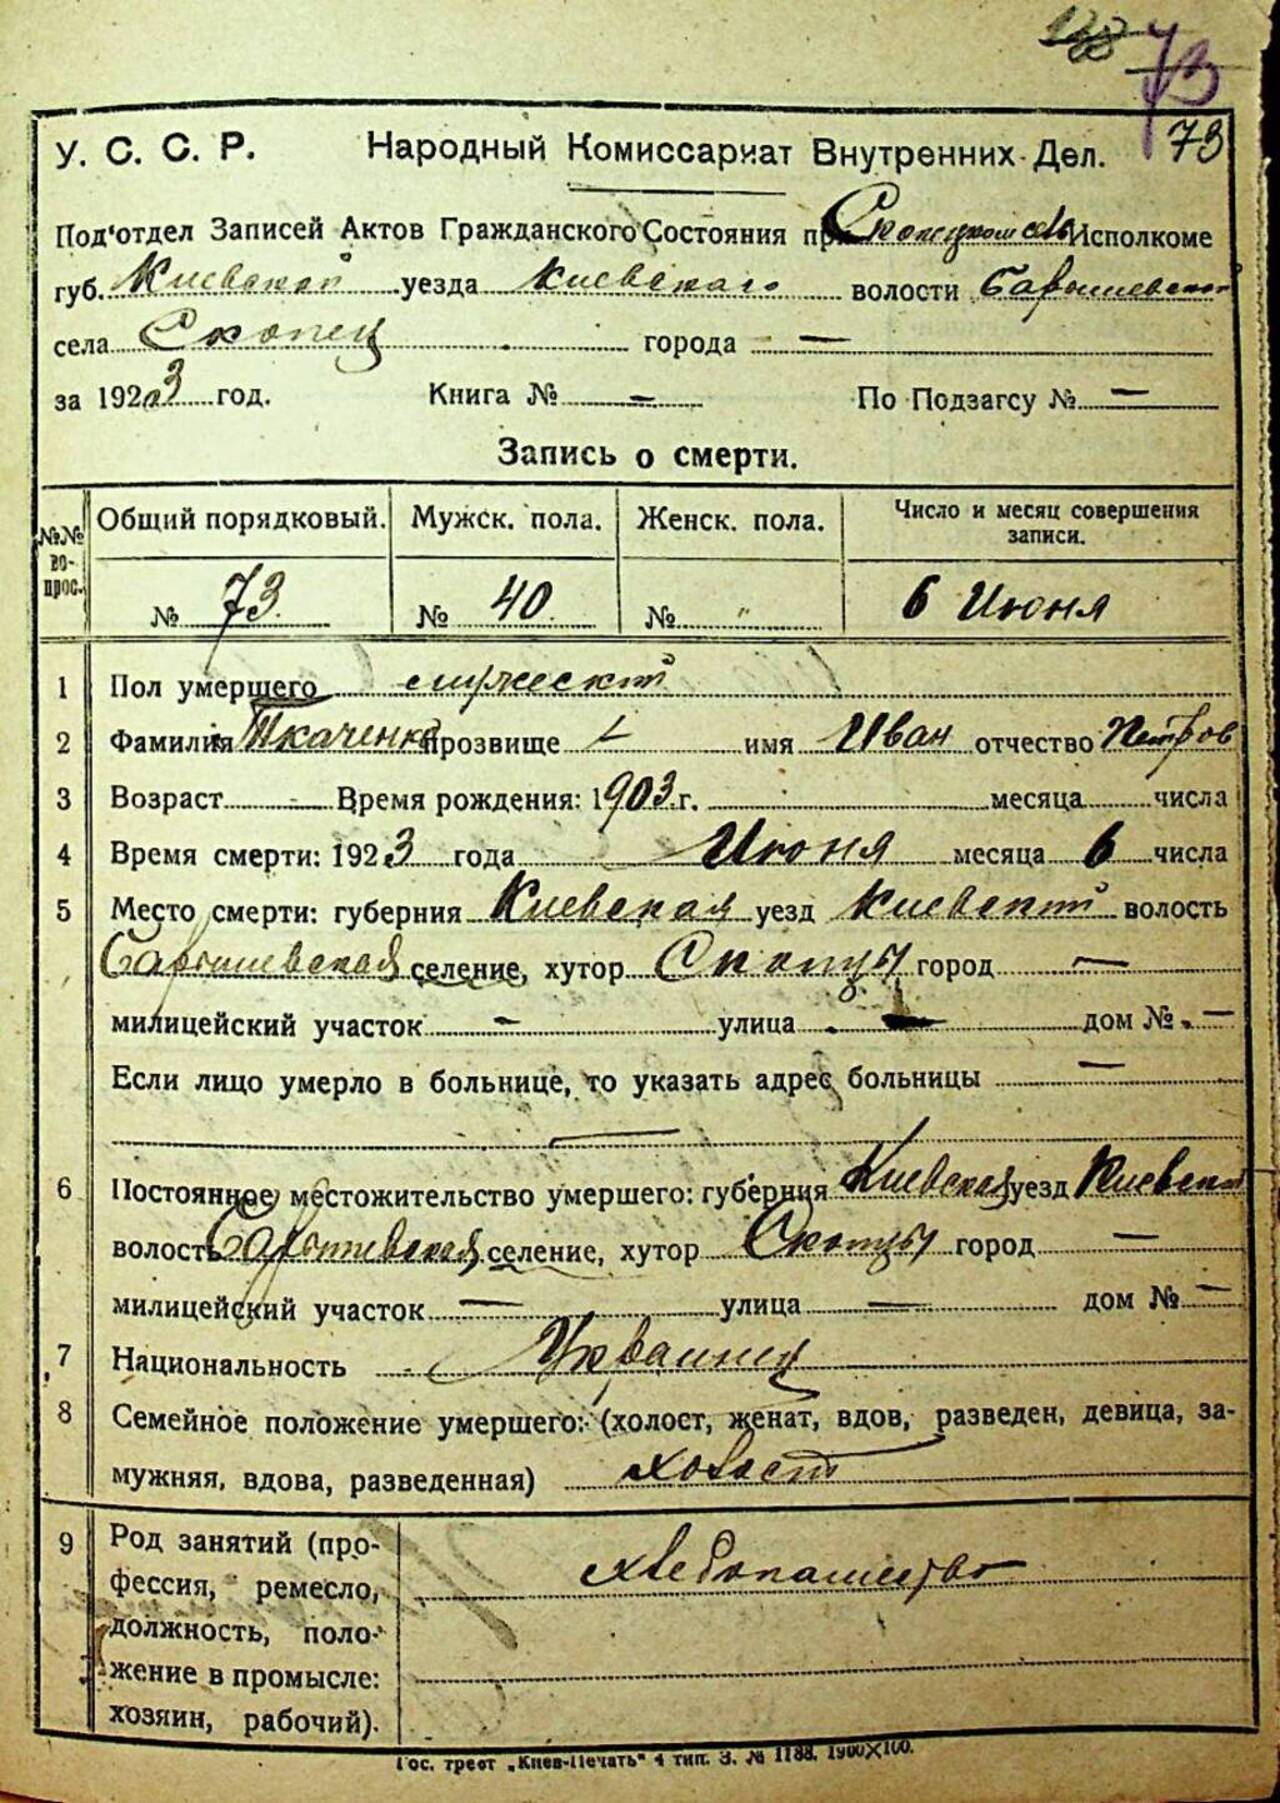 138 73
У. С. С. Р. Народный Комиссариат Внутренних Дел. 73
Под'отдел Записей Актов Гражданского Состояния при Исполкоме
губ. Киевской уезда Киевского волости Барышевской
села Скопец города —
за 1923 год. Книга № — По Подзагсу № —
Запись о смерти.
№№ вопрос. Общий порядковый. Мужск. пола. Женск. пола. Число и месяц совершения записи.
№ 73. № 40. № " 6 Июня
1 Пол умершего мужеский
2 Фамилия Ткаченко прозвище — имя Иван отчество Петров
3 Возраст — Время рождения: 1903 г. месяца числа
4 Время смерти: 1923 года Июня месяца 6 числа
5 Место смерти: губерния Киевская уезд Киевский волость
Барышевская селение, хутор Скопцы город —
милицейский участок — улица — дом № —
Если лицо умерло в больнице, то указать адрес больницы —
—
6 Постоянное местожительство умершего: губерния Киевская уезд Киевский
волость Барышевская селение, хутор Скопцы город —
милицейский участок — улица — дом № —
7 Национальность Украинец
8 Семейное положение умершего: (холост, женат, вдов, разведен, девица, за-
мужняя, вдова, разведенная) холост
9 Род занятий (про-
фессия, ремесло, хлебопашество
должность, поло-
жение в промысле:
хозяин, рабочий).
Гос. трест „Киев-Печать" 4 тип. З. № 1188. 1900×100.